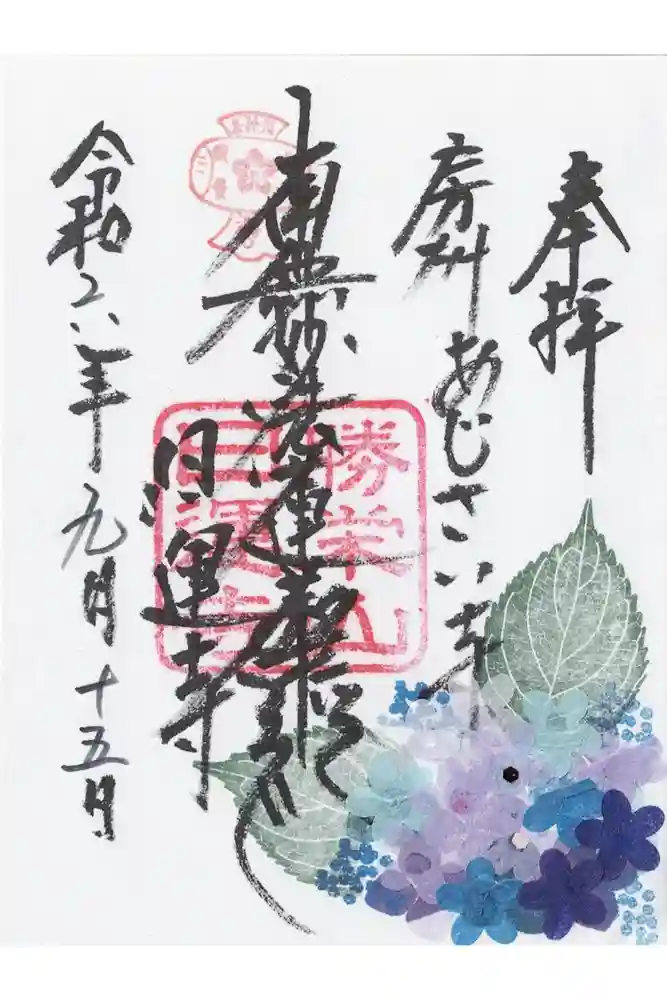 奉拝
房州あじさい寺
南無妙法蓮華経
日運寺
令和六年九月十五日
勝栄山
日運寺